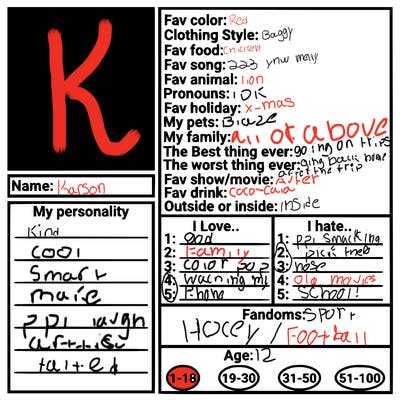 K
Name: Karson
My personality
Kind
cool
Smart
Fav color: Red
Clothing Style: Baggy
Fav food: Chicken
Fav song: 223
Fav animal: lion
Pronouns: IDK
Fav holiday: x-mas
My pets: Blaze
My family: all of above
The Best thing ever: going on trips
The worst thing ever: going back home
after the trip
Fav show/movie:
Fav drink: coco-cala
Outside or inside: inside
I Love..
1: god
2: Family
3: color
4:
5: Phone
I hate..
1: ppl smacking
2:
3: nose
4: old movies
5: School!
Fandoms: Sport
Hocey / Football
Age: 12
1-18 19-30 31-50 51-100